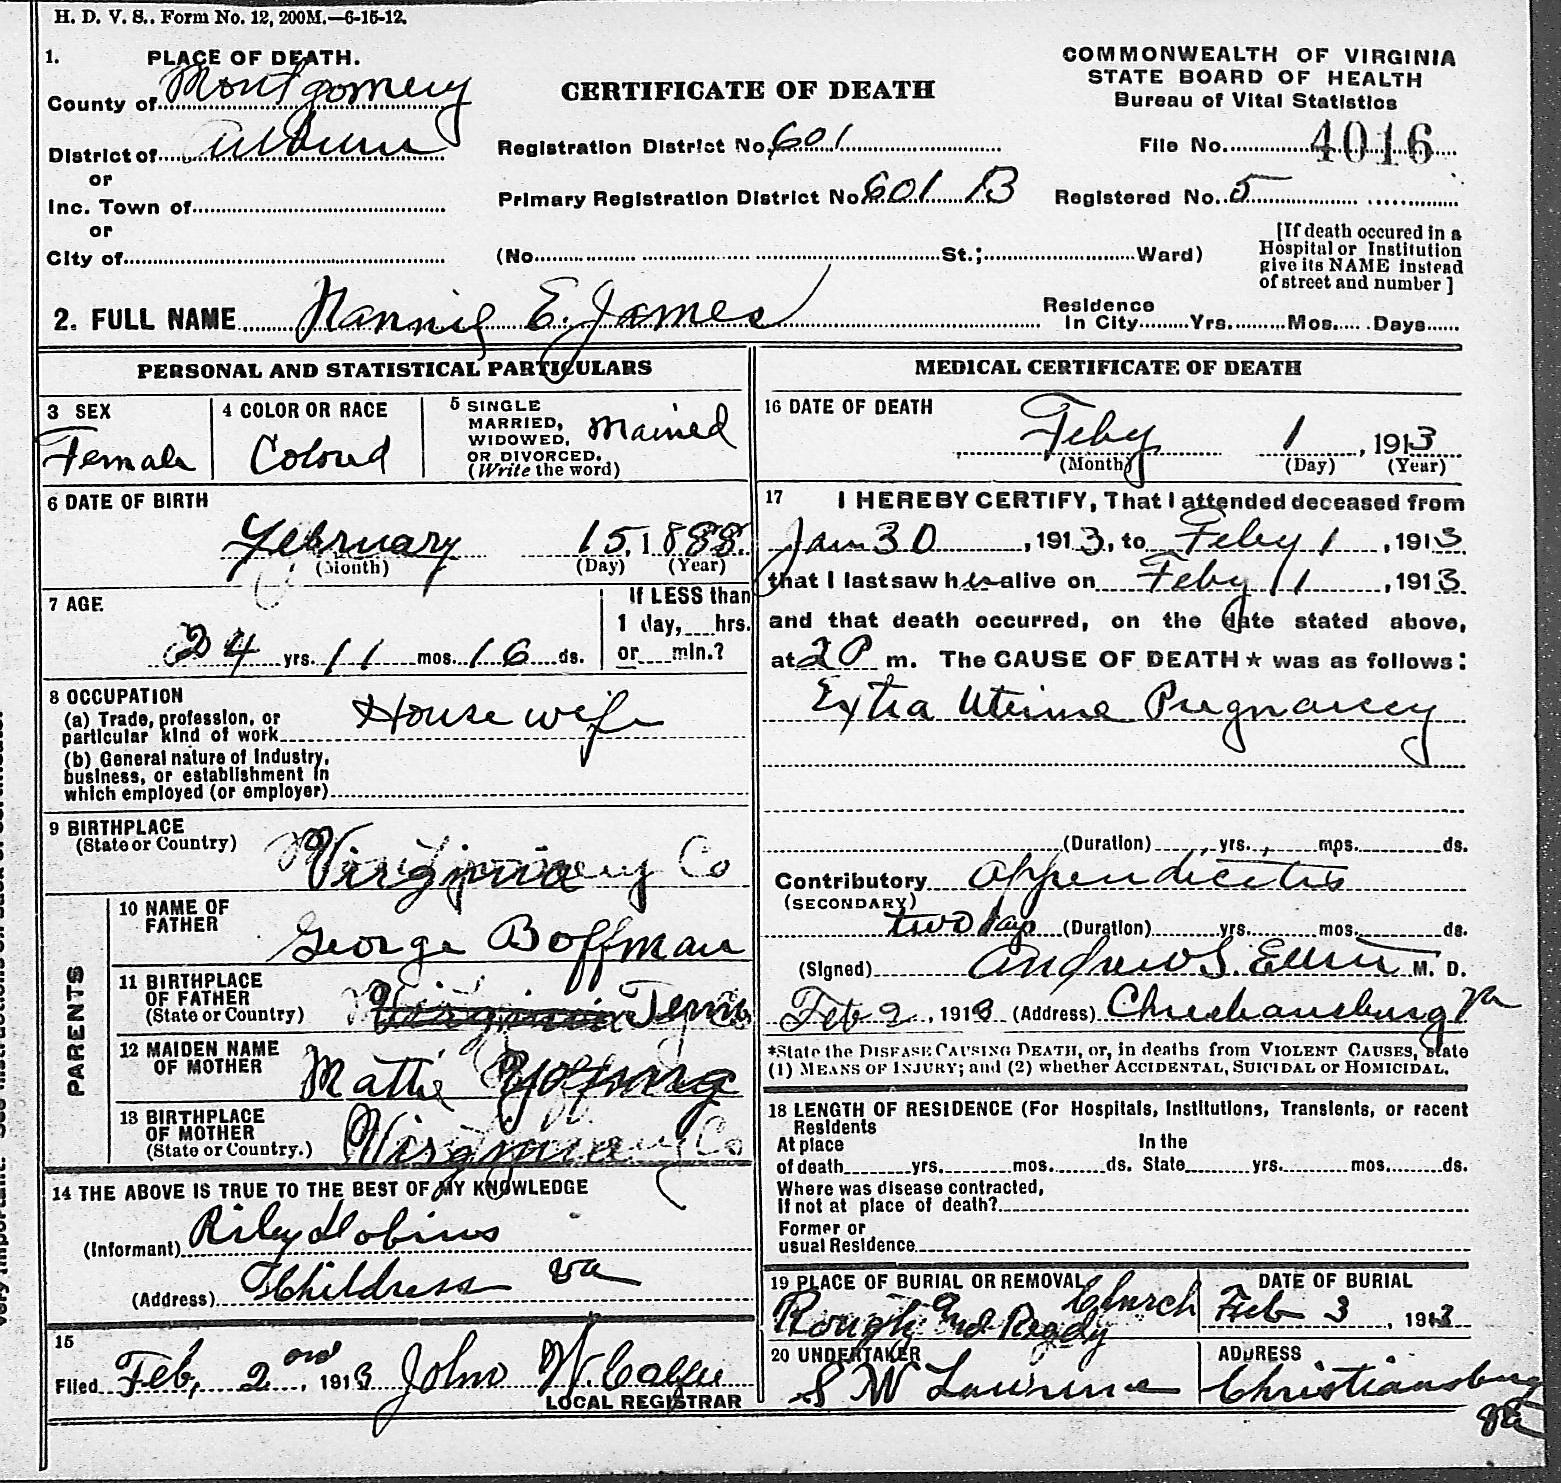 H. D. V. S.. Form No. 12, 200M.—6-15-12.
1. PLACE OF DEATH.
County of Montgomery
District of Auburn
or
Inc. Town of
or
City of
CERTIFICATE OF DEATH
Registration District No. 601
Primary Registration District No. 601 B
(No. St.; Ward)
COMMONWEALTH OF VIRGINIA
STATE BOARD OF HEALTH
Bureau of Vital Statistics
File No. 4016
Registered No. 5
[If death occured in a
Hospital or Institution
give its NAME instead
of street and number]
2. FULL NAME Nannie E. James
Residence
In City Yrs. Mos. Days
PERSONAL AND STATISTICAL PARTICULARS
3 SEX
Female
4 COLOR OR RACE
Colored
5 SINGLE
MARRIED,
WIDOWED,
OR DIVORCED.
(Write the word)
Married
6 DATE OF BIRTH
February 15, 1888
(Month) (Day) (Year)
7 AGE
24 yrs. 11 mos. 16 ds.
If LESS than
1 day, hrs.
or min.?
8 OCCUPATION
(a) Trade, profession, or
particular kind of work
House wife
(b) General nature of Industry,
business, or establishment in
which employed (or employer)
9 BIRTHPLACE
(State or Country)
Virginia Co
PARENTS
10 NAME OF
FATHER
George Boffman
11 BIRTHPLACE
OF FATHER
(State or Country)
Virginia Tenn
12 MAIDEN NAME
OF MOTHER
Mattie
13 BIRTHPLACE
OF MOTHER
(State or Country.)
Virginia Co
14 THE ABOVE IS TRUE TO THE BEST OF MY KNOWLEDGE
(Informant) Riley
(Address) Childress Va
15
Filed Feb, 2nd, 1913 John W. Calfee
LOCAL REGISTRAR
MEDICAL CERTIFICATE OF DEATH
16 DATE OF DEATH
Feby 1, 1913
(Month) (Day) (Year)
17 I HEREBY CERTIFY, That I attended deceased from
Jan 30, 1913, to Feby 1, 1913
that I last saw her alive on Feby 1, 1913
and that death occurred, on the date stated above,
at 2 P m. The CAUSE OF DEATH★ was as follows:
Extra Uterine Pregnancy
(Duration) yrs. mos. ds.
Contributory Appendicitis
(SECONDARY)
two days (Duration) yrs. mos. ds.
(Signed) Andrew S. Ellett M. D.
Feb 2, 1913 (Address) Christiansburg Va
*State the DISEASE CAUSING DEATH, or, in deaths from VIOLENT CAUSES, state
(1) MEANS OF INJURY; and (2) whether ACCIDENTAL, SUICIDAL or HOMICIDAL.
18 LENGTH OF RESIDENCE (For Hospitals, Institutions, Transients, or recent
Residents
At place
of death yrs. mos. ds.
In the
State yrs. mos. ds.
Where was disease contracted,
If not at place of death?
Former or
usual Residence
19 PLACE OF BURIAL OR REMOVAL
Rough And Ready Church
DATE OF BURIAL
Feb 3, 1913
20 UNDERTAKER
S W Lawrence
ADDRESS
Christiansburg
Va